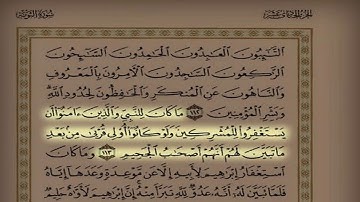 الجزء الحادي عشر
سورة التوبة
التَّٰٓئِبُونَ ٱلْعَٰبِدُونَ ٱلْحَٰمِدُونَ ٱلسَّٰٓئِحُونَ
ٱلرَّٰكِعُونَ ٱلسَّٰجِدُونَ ٱلْءَامِرُونَ بِٱلْمَعْرُوفِ
وَٱلنَّاهُونَ عَنِ ٱلْمُنكَرِ وَٱلْحَٰفِظُونَ لِحُدُودِ ٱللَّهِ
وَبَشِّرِ ٱلْمُؤْمِنِينَ ١١٢ مَا كَانَ لِلنَّبِيِّ وَٱلَّذِينَ ءَامَنُوٓا۟ أَن
يَسْتَغْفِرُوا۟ لِلْمُشْرِكِينَ وَلَوْ كَانُوٓا۟ أُو۟لِى قُرْبَىٰ مِنۢ بَعْدِ
مَا تَبَيَّنَ لَهُمْ أَنَّهُمْ أَصْحَٰبُ ٱلْجَحِيمِ ١١٣ وَمَا كَانَ
ٱسْتِغْفَارُ إِبْرَٰهِيمَ لِأَبِيهِ إِلَّا عَن مَّوْعِدَةٍ وَعَدَهَآ إِيَّاهُ
فَلَمَّا تَبَيَّنَ لَهُۥٓ أَنَّهُۥ عَدُوٌّ لِّلَّهِ تَبَرَّأَ مِنْهُ إِنَّ إِبْرَٰهِيمَ لَأَوَّٰهٌ حَلِيمٌ